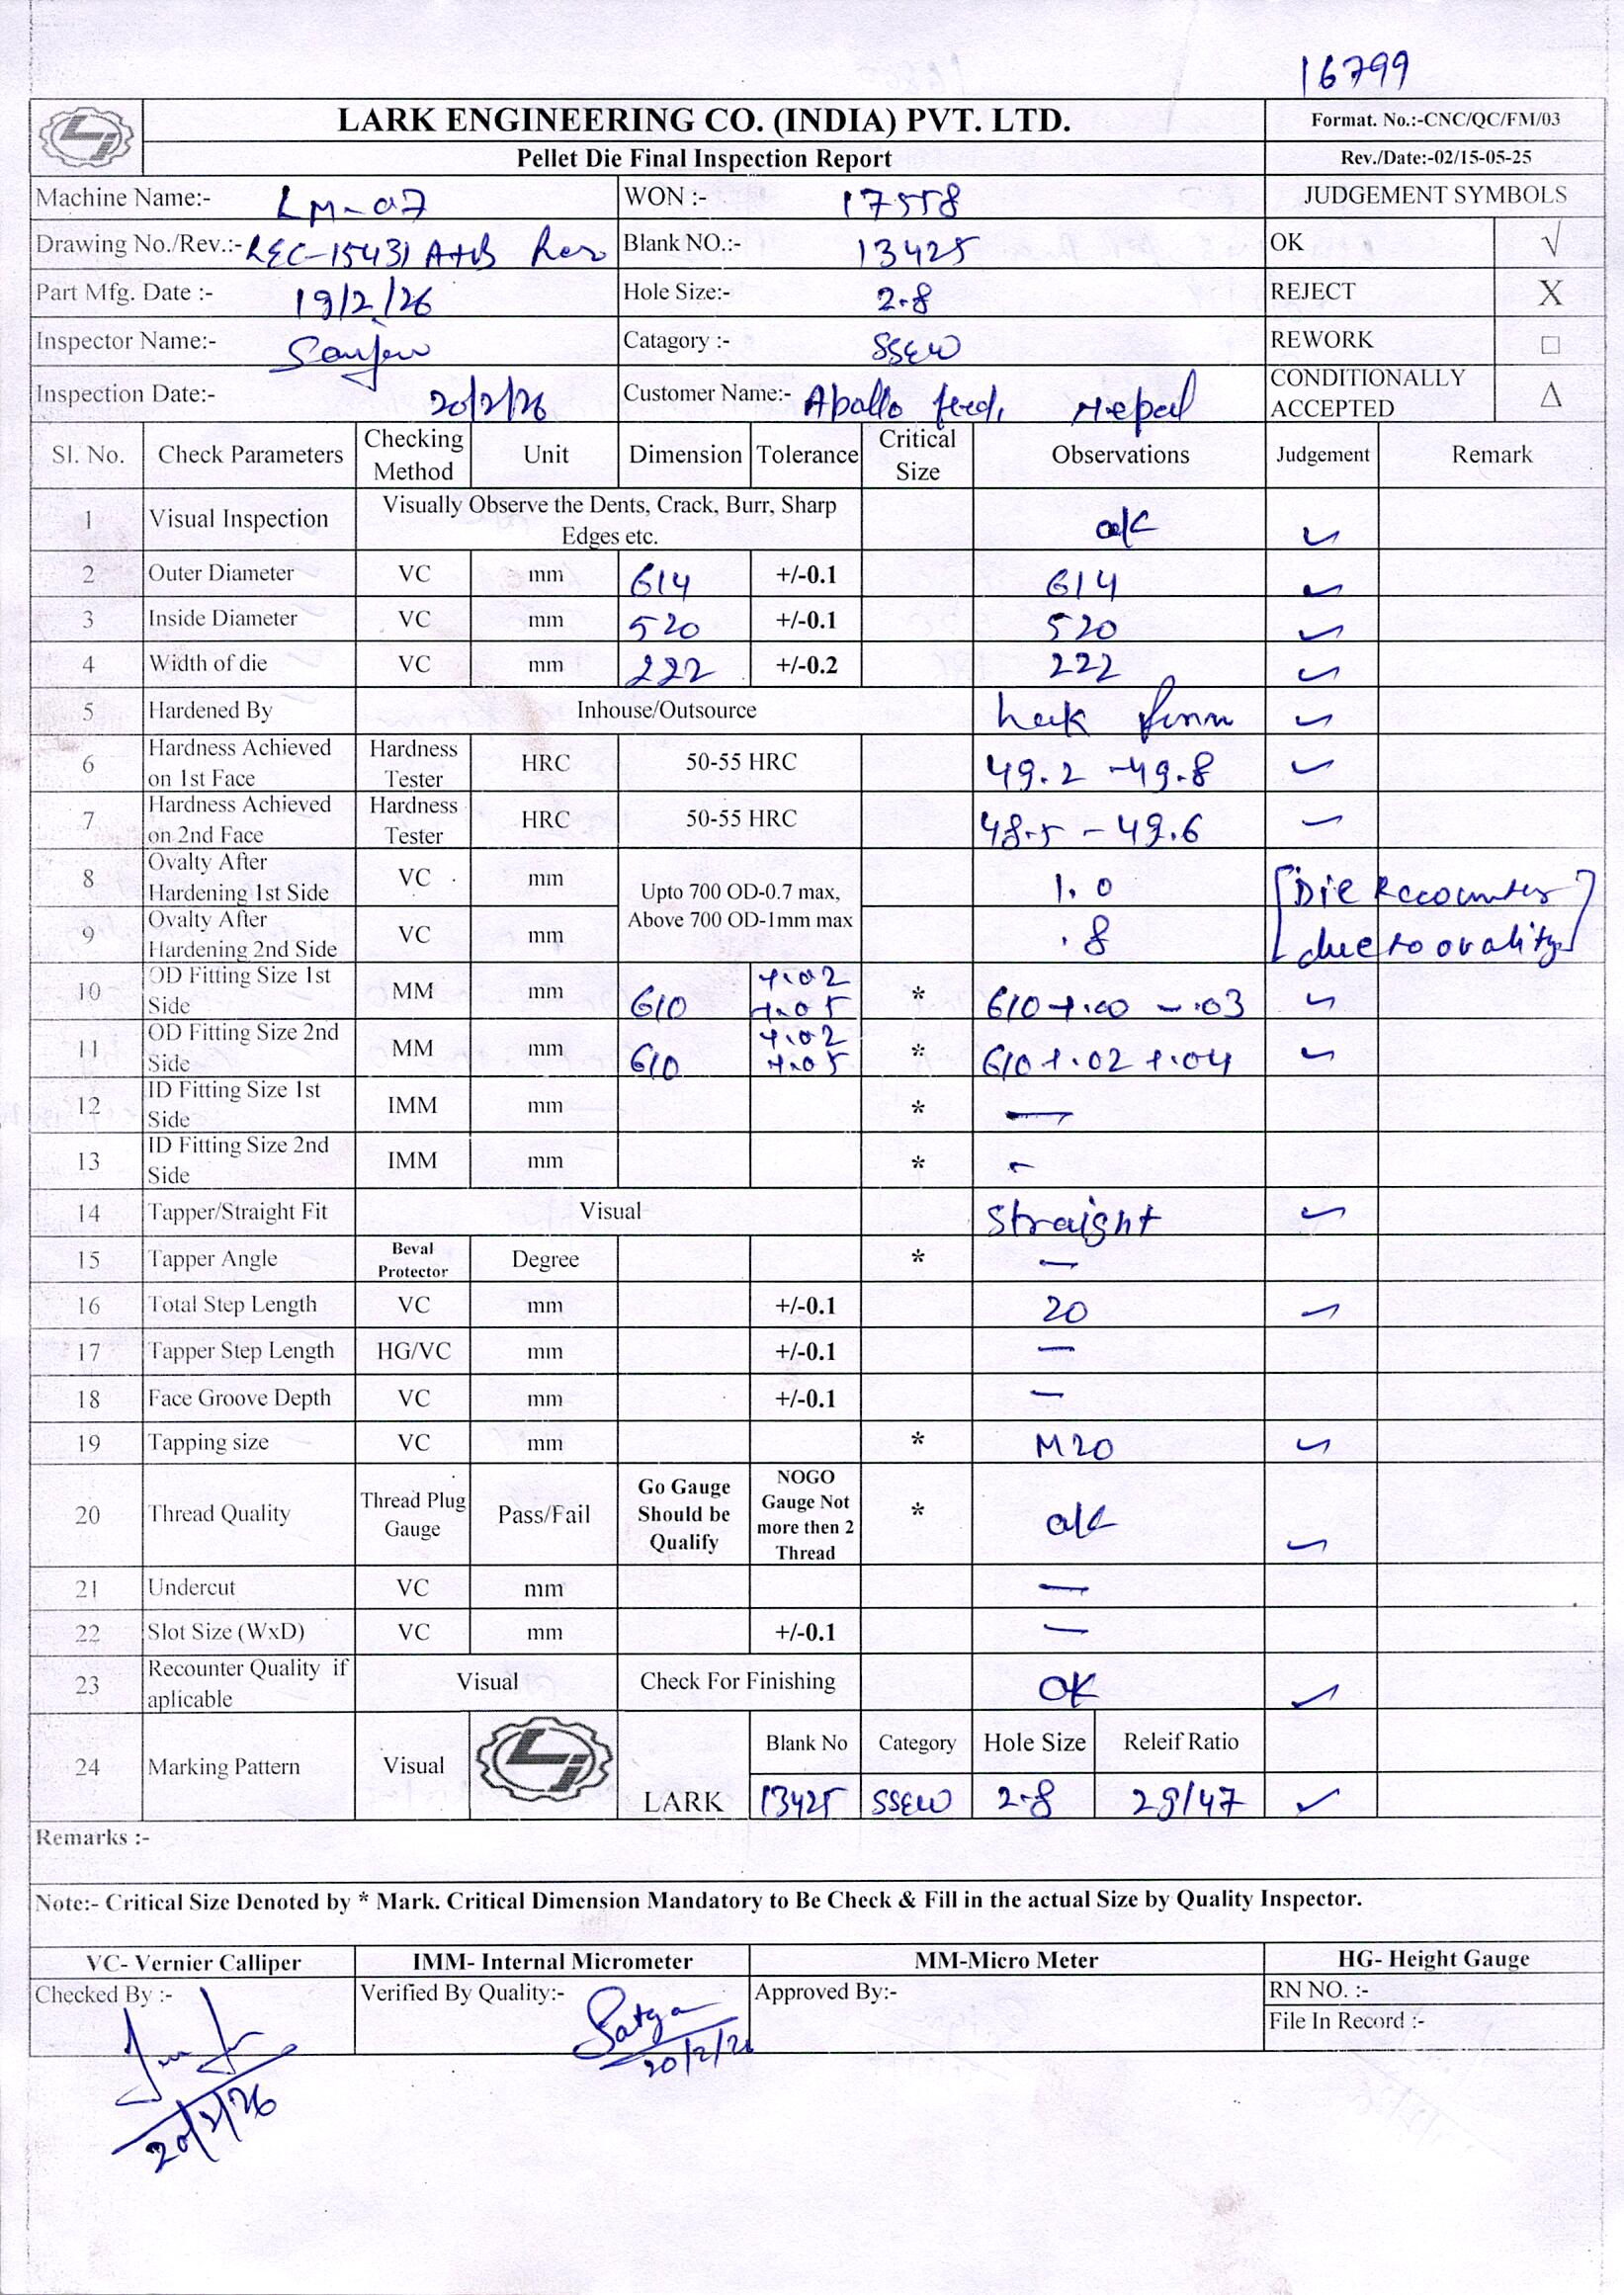 16799
LARK ENGINEERING CO. (INDIA) PVT. LTD. Format. No.:-CNC/QC/FM/03
Pellet Die Final Inspection Report Rev./Date:-02/15-05-25
Machine Name:- LM-07 WON :- 17558 JUDGEMENT SYMBOLS
Drawing No./Rev.:- LEC-15431 A+B Blank NO.:- 13425 OK √
Part Mfg. Date :- 19/2/26 Hole Size:- 2.8 REJECT X
Inspector Name:- Sanjeev Catagory :- SSEW REWORK □
Inspection Date:- 20/2/26 Customer Name:- Apollo feed, Nepal CONDITIONALLY ACCEPTED Δ
Sl. No. Check Parameters Checking Method Unit Dimension Tolerance Critical Size Observations Judgement Remark
1 Visual Inspection Visually Observe the Dents, Crack, Burr, Sharp Edges etc. o/k ✓
2 Outer Diameter VC mm 614 +/-0.1 614 ✓
3 Inside Diameter VC mm 520 +/-0.1 520 ✓
4 Width of die VC mm 222 +/-0.2 222 ✓
5 Hardened By Inhouse/Outsource ✓
6 Hardness Achieved on 1st Face Hardness Tester HRC 50-55 HRC 49.2 -49.8 ✓
7 Hardness Achieved on 2nd Face Hardness Tester HRC 50-55 HRC 48.5 - 49.6 ✓
8 Ovalty After Hardening 1st Side VC mm Upto 700 OD-0.7 max, Above 700 OD-1mm max 1.0 [Die Recounter
9 Ovalty After Hardening 2nd Side VC mm .8 due to ovality]
10 OD Fitting Size 1st Side MM mm 610 +.02 +.05 * 610 +.00 -.03 ✓
11 OD Fitting Size 2nd Side MM mm 610 +.02 +.05 * 610 +.02 +.04 ✓
12 ID Fitting Size 1st Side IMM mm * —
13 ID Fitting Size 2nd Side IMM mm * -
14 Tapper/Straight Fit Visual Straight ✓
15 Tapper Angle Beval Protector Degree * —
16 Total Step Length VC mm +/-0.1 20 ✓
17 Tapper Step Length HG/VC mm +/-0.1 —
18 Face Groove Depth VC mm +/-0.1 —
19 Tapping size VC mm * M20 ✓
20 Thread Quality Thread Plug Gauge Pass/Fail Go Gauge Should be Qualify NOGO Gauge Not more then 2 Thread * o/k ✓
21 Undercut VC mm —
22 Slot Size (WxD) VC mm +/-0.1 —
23 Recounter Quality if aplicable Visual Check For Finishing OK ✓
24 Marking Pattern Visual LARK Blank No Category Hole Size Releif Ratio
13425 SSEW 2.8 29/47 ✓
Remarks :-
Note:- Critical Size Denoted by * Mark. Critical Dimension Mandatory to Be Check & Fill in the actual Size by Quality Inspector.
VC- Vernier Calliper IMM- Internal Micrometer MM-Micro Meter HG- Height Gauge
Checked By :- Verified By Quality:- Satya Approved By:- RN NO. :-
20/2/26 File In Record :-
20/2/26